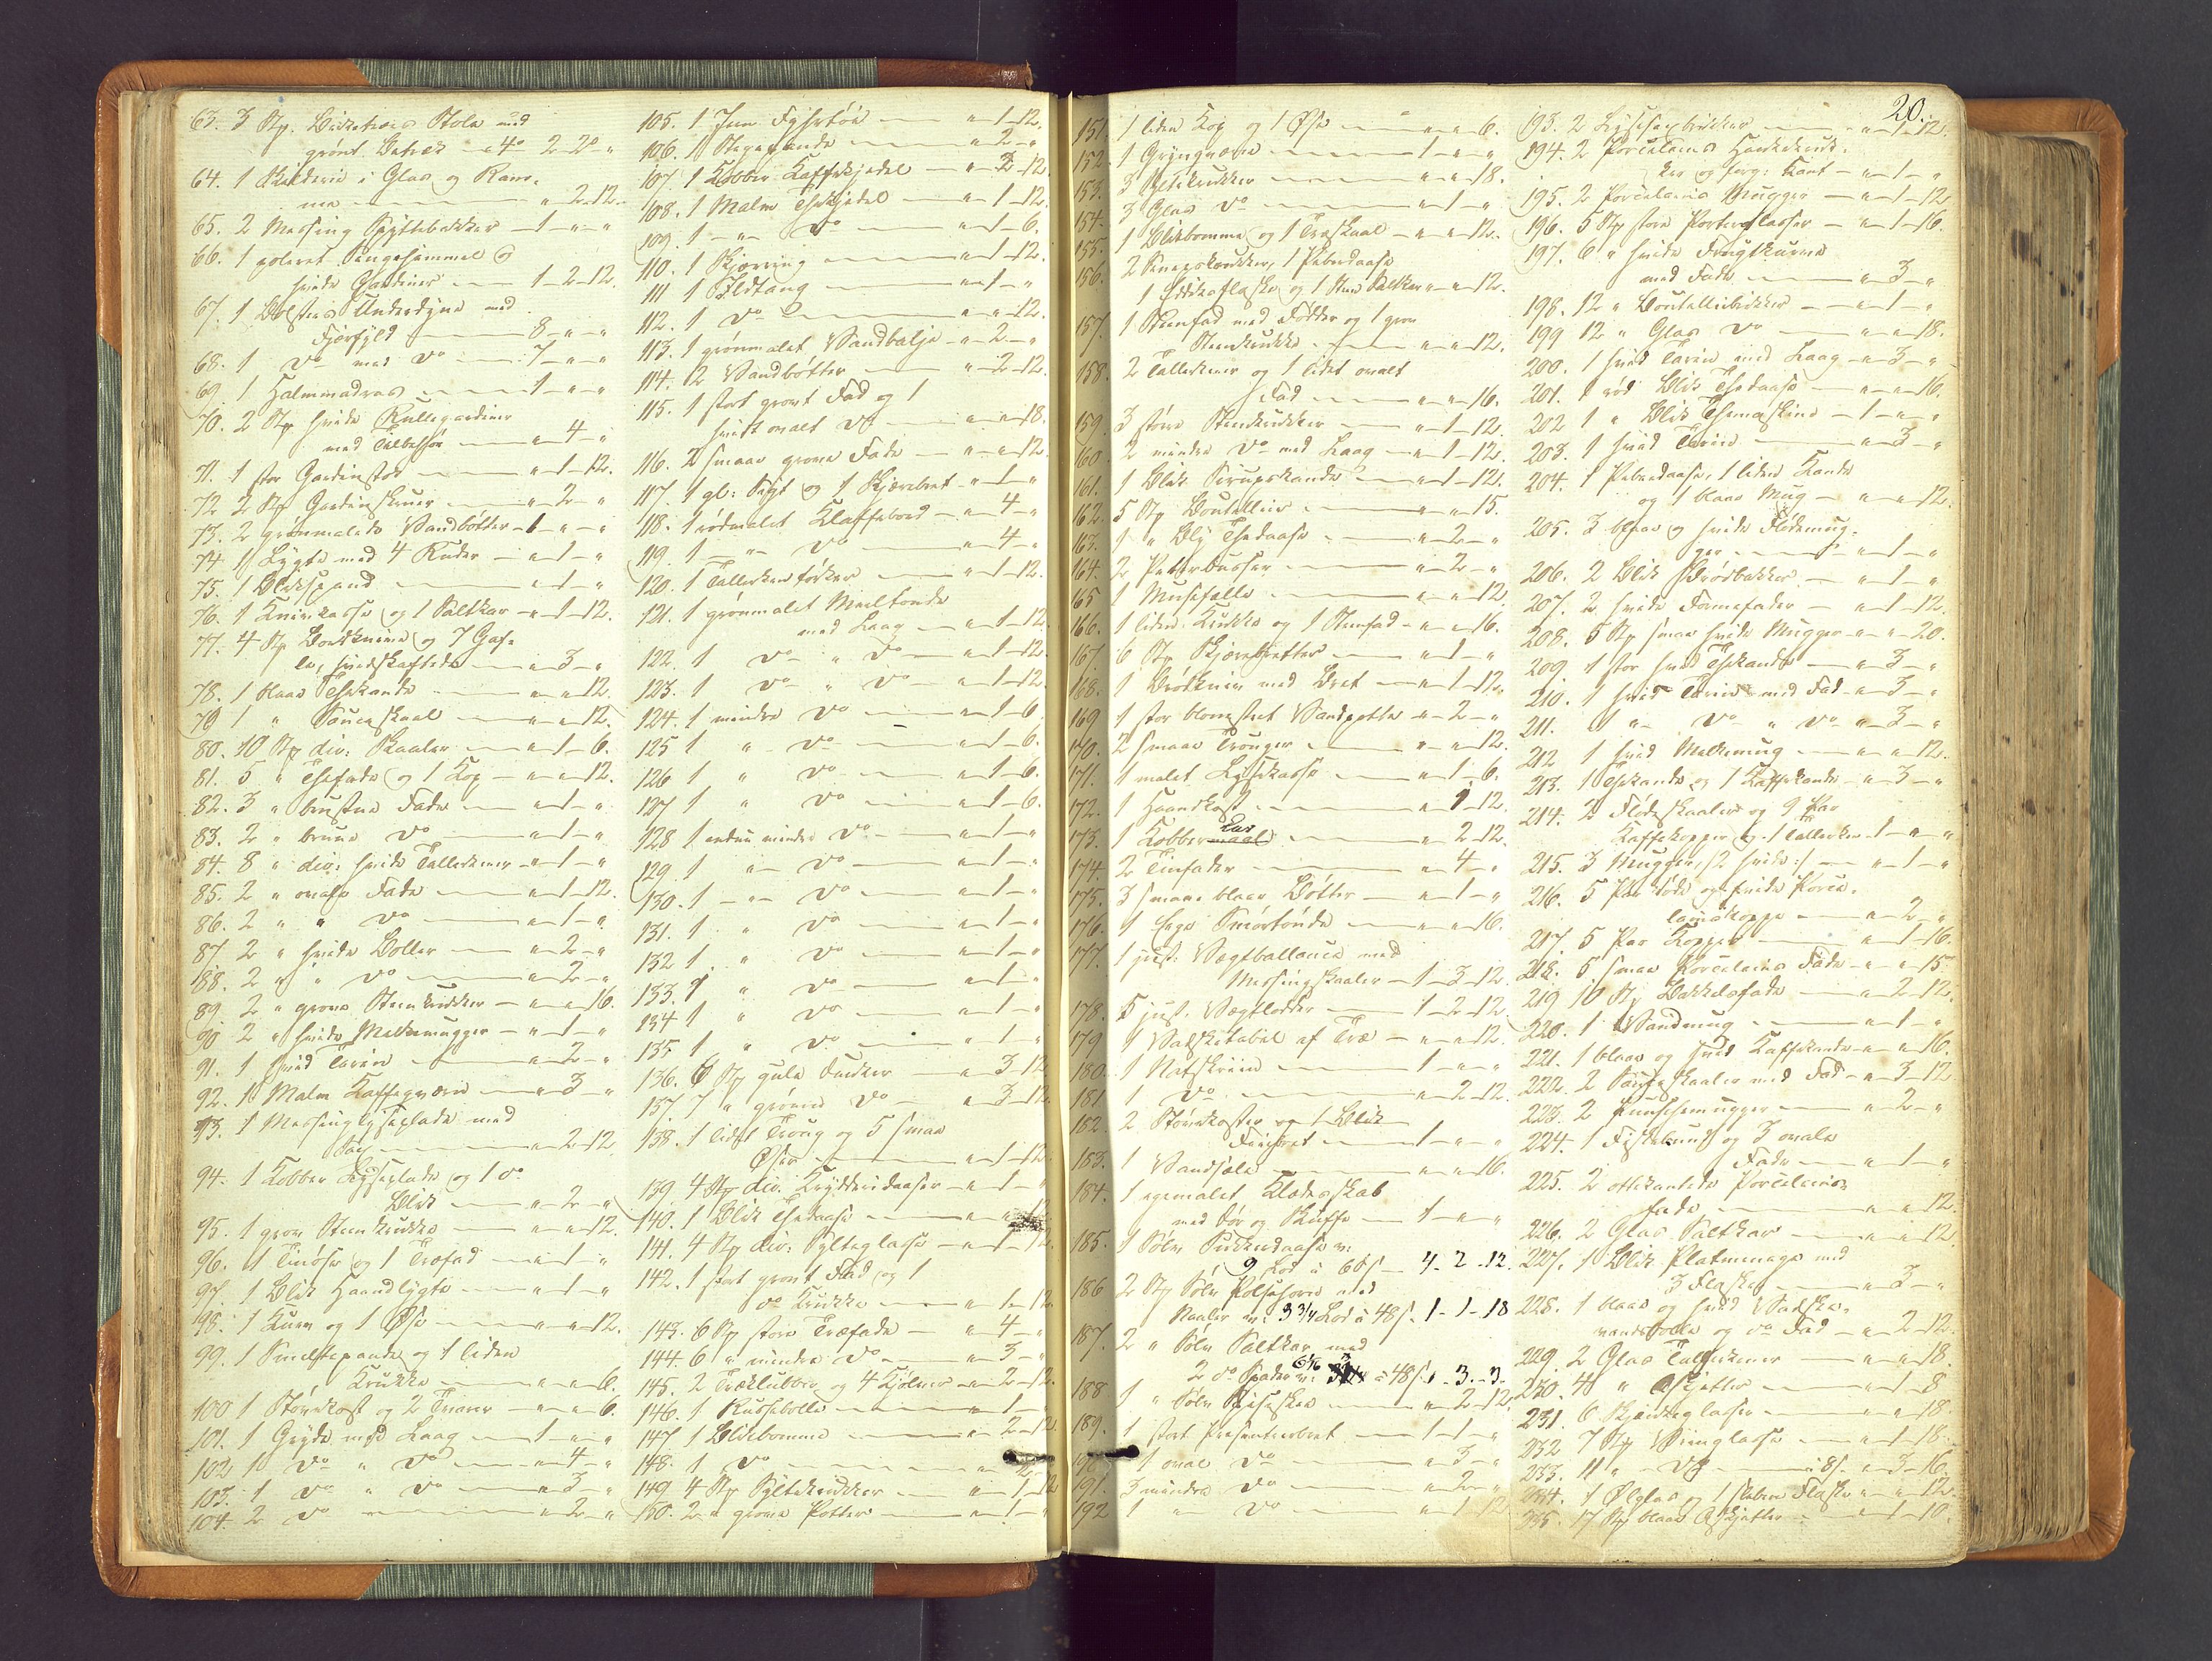 63. 3 Stp. Birketræes Stole med
grønt Betræk - a 4° 2 - 2 - "
64. 1 Skilderie i Glas og Ram-
me " - 2 - 12.
65. 2 Messing Spyttebakker - 1 - " - "
66. 1 poleret Sengehimmel og
hvide Gardiner 1 - 2 - 12.
67. 1 Bolsters Underdyne med
Fjærfyld 8 - " - "
68. 1 do med do 7 - " - "
69. 1 Halmmadras 1 - " - "
70. 2 Stp hvide Rullegardiner
med Tilbehør " - 4 - "
71. 1 stor Gardinstok " - 1 - 12.
72 2 Stp Gardinskruer " - 2 - "
73. 2 grønmalede Vandbøtter - 1 - " - "
74 1 Lygte med 4 Ruder - " - 1 - "
75. 1 Blikspand " - 1 - "
76. 1 Knivkasse og 1 Saltkar - " - 1 - 12.
77. 4 Stp Bordknive og 7 Gaf-
ler, hvidskaftede " - 3 - "
78. 1 blaa Thekande " - " - 12.
79 1 " Sauceskaal " - " - 12.
80. 10 Stp div: Skaaler " - 1 - 6.
81. 5 " Thefade og 1 Kop - " - " - 12.
82. 3 " brustne Fade " - 1 - "
83. 2 " brune do " - 1 - "
84. 8 " div: hvide Tallerkener - " - 1 - "
85. 2 " ovale Fade " - 1 - 12.
86. 2 " " do " - 1 - "
87 2 " hvide Boller " - 2 - "
88. 2 " " do " - 2 - "
89 2 " grove Steenkrukker - " - " - 16.
90 2 " hvide Melkemugger - " - 1 - "
91. 1 hvid Terrin " - 2 - "
92. 1 Malm Kaffeqværn " - 3 - "
93. 1 Messinglyseplade med
Sax " - 2 - 12.
94. 1 Kobber Lyseplade og 1 do
Blik " - 2 - "
95. 1 grov Steenkrukke " - " - 12.
96. 1 Tinøse og 1 Træfad " - 1 - "
97. 1 Blik Haandlygte " - 1 - "
98. 1 Kurv og 1 Øse " - " - 12.
99. 1 Smeltepande og 1 liden
Krukke " - " - 6.
100 1 Støvekost og 2 Tvarer " - " - 6.
101. 1 Gryde med Laag 1 - " - "
102 1 do " do " - 4 - "
103. 1 do " do " - 3 - "
104. 2 do " - 2 - "
105. 1 Jern Fyhrtøi " - 1 - 12.
106. 1 Stegepande " - 2 - "
107. 1 Kobber Kaffekjedel " - 2 - 12.
108. 1 Malm Thekjedel " - 1 - 12.
109. 1 - " - do " - 1 - 6.
110. 1 Kjørring " - 1 - 12.
111 1 Ildtang " - 1 - "
112. 1 do " - " - 12.
113. 1 grønmalet Vandbalje - " - 2 - "
114. 2 Vandbøtter " - 2 - 12.
115. 1 stort grovt Fad og 1
hvidt ovalt do " - " - 18.
116. 2 smaae grove Fade " - " - 12.
117. 1 gl: Sigt og 1 Skjærebret - " - 1 - "
118. 1 rødmalet Klaffebord " - 4 - "
119. 1 - " - do " - 4 - "
120. 1 Tallerkentørker " - 1 - 12.
121. 1 grønmalet Meeltønde
med Laag " - 1 - 12
122. 1 do " do " - 1 - 12.
123. 1 do " do " - 1 - 12
124. 1 mindre do " - 1 - 6
125 1 " do " - 1 - 6.
126 1 " do " - 1 - 6.
127 1 " do " - 1 - 6.
128 1 endnu mindre do " - 1 - "
129. 1 " do " - 1 - "
130. 1 - " - do " - 1 - "
131. 1 " do " - 1 - "
132 1 " do " - 1 - "
133. 1 " do " - 1 - "
134 1 " do " - 1 - "
135 1 " do " - 1 - "
136. 6 Stp gule Dunker " - 3 - 12
137. 7 " grønne do " - 3 - 12
138. 1 lidet Troug og 5 smaa
Øser " - 1 - 12.
139 4 Stp div. Krydderidaaser - " - 1 - "
140. 1 Blik Thedaase " - "
141. 4 Stp div: Sylteglasse - " - 1 - 12.
142. 1 stort grovt Fad og 1
do Krukke " - 1 - 12
143. 6 Stp store Træfade " - 4 - "
144. 6 " mindre do " - 3 - "
145. 2 Træklubber og 4 - " - 2 - 12.
146. 1 Punschebolle " - 1 - "
147. 1 Blikbomme " - 2 - 12
148. 1 do
149 4 Stp Syltekrukker " - 1 - 12
150. 2 " grove Potter " - 1 - "
20.
151. 1 liden Kop og 1 Øse " - " - 6.
152. 1 Grynqværn 1 - " - "
153. 3 Syltekrukker " - " - 18.
154. 3 Glas do " - 1 - "
155. 1 Blikbomme og 1 Træskaal - " - " - 12.
156. 2 Senepskrukker, 1 Peberdaase
1 Eddikeflaske og 1 Steen Saltkar " - " - 12.
157. 1 Steenfad med Fødder og 1 grov
Steenkrukke " - " - 12.
158. 2 Tallerkener og 1 lidet ovalt
Fad " - " - 16.
159. 3 større Steenkrukker " - 1 - 12.
160. 2 mindre do med Laag - " - 1 - 12.
161. 1 Blik Sirupskande " - 1 - 12.
162. 5 Stp Bouteiller " - " - 15.
163. 1 " Bly Thedaase " - 2 - "
164. 2 Peberbusser " - 2 - "
165 1 Musefælle " - " - 12
166. 1 liden Krukke og 1 Steenfad - " - " - 16.
167. 6 Stp Skjærebretter " - 1 - "
168. 1 Brødkniv med Bret - " - 1 - 12.
169 1 stor blomstret Vandpotte - " - 2 - "
170. 2 smaae Trouger " - " - 12.
171. 1 malet Lysekasse " - 1 - 6.
172. 1 Haandkost " - 1 - 12.
173. 1 Kobbermaal Kar " - 2 - 12.
174. 2 Tinfade " - 4 - "
175. 3 smaae blaae Bøtter " - 1 - "
176. 1 Smørtønde " - " - 16.
177. 1 just. Vægtballance med
Messingskaaler - 1 - 3 - 12
178. 5 just. Vægtlodder 1 - 2 - 12
179 1 Vadsketabel af Træ - " - " - 12.
180. 1 Natskriin 1 - " - "
181 1 do " - 2 - 12
182. 2 Støvekoster og 1 Blik
Feiebret 1 - " - "
183. 1 Vandsæle " - " - 16.
184. 1 egemalet Klædeskab
med Dør og Skuffe 1 - " - "
185. 1 Sølv Sukkerdaase v:
9 Lod à 60 s - 4 - 2 - 12.
186 2 Stp Sølv med
Naaler v: 3 3/4 Lod à 48 s. 1 - 1 - 18
187. 2 " Sølv Saltkar med
2 do Spader v: 6 1/16 à 48 s. - 3 - 3.
188. 1 " Sølv Spiseskee " - 2 - 12
189. 1 stort Præsenteerbret 1 - 1 - "
190. 1 oval do " - 3 - "
191. 3 mindre do " - 2 - "
192 1 " do " - 1 - 12
193. 2 Lysesaxbrikker " - 1 - 12.
194. 2 Porcelains
og forg: Kant " - 1 - "
195. 2 Porcelains Mugger " - 1 - 12
196. 5 Stp store Porterglasser - " - 1 - 16.
197. 6 " hvide Frugtkurve
med Fade " - 3 - "
198. 12 " Bouteillebrikker " - 1 - "
199 12 " Glas do " - " - 18.
200. 1 hvid Terrin med Laag - " - 3 - "
201. 1 rød Blik Thedaase " - " - 16.
202 1 " Blik Themaskine - 1 - " - "
203. 1 hvid Terrin " - 3 - "
204. 1 Peberdaase, 1 liden Kande
og 1 blaae Mug " - " - 12.
205. 3 blaae og hvide Flødemug-
ger " - 1 - "
206. 2 Blik Brødbakker " - 1 - "
207. 2 hvide Formefade " - 1 - 12.
208. 5 Stp smaa hvide Mugger - " - " - 20.
209 1 stor hvid Thekande " - 3 - "
210. 1 hvid Terrin med Fad - " - 3 - "
211. 1 " do " do " - 3 - "
212 1 hvid Melkemug " - " - 12.
213. 1 Thekande og 1 Kaffekande - " - 3 - "
214. 2 Flødeskaaler og 9 Par
Kaffekopper og 1 Tallerken 1 - " - "
215. 3 Mugger /: 2 hvide :/ " - 1 - "
216. 5 Par røde og hvide Porce-
lainskoppe " - 2 - "
217. 5 Par Kopper " - 1 - 16.
218. 5 smaae Porcelains Fade - " - " - 15
219 10 Stp Bakkelsfade " - 2 - 12.
220. 1 Vandmug " - 1 - "
221. 1 blaae og hvid Kaffekande - " - " - 16.
222. 2 Sauceskaaler med Fad - " - 3 - 12
223. 2 Punschemugger " - 2 - "
224. 1 og 3 ovale
Fade " - 1 - "
225. 2 ottekantede Porcelains
fade " - " - 12
226. 2 Glas Saltkar " - " - 12.
227. 1 Blik Platmenage med
3 Flasker " - 3 - "
228. 1 blaae og hvid Vadske-
vandsbolle og do Fad " - 2 - 12.
229. 2 Glas Tallerkener " - " - 18.
230. 4 " Asjetter " - 1 - 8
231. 6 Skjænkeglasse " - " - 18.
232 7 Stp Viinglasse " - 1 - 18.
233. 11 " do à 8 s. - " - 3 - 16.
234. 1 Ølglas og 1 sleben Flaske - " - " - 12
235. 17 Stp blaae Asjetter " - 1 - 10.